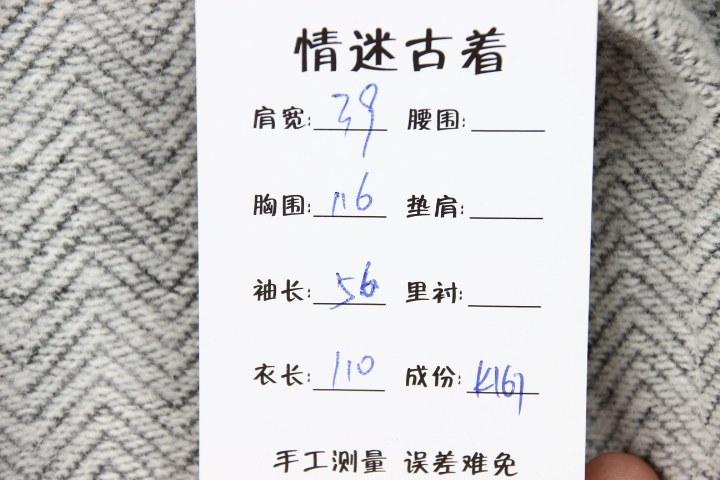 情迷古着
肩宽: 39 腰围:
胸围: 116 垫肩:
袖长: 56 里衬:
衣长: 110 成份: K167
手工测量 误差难免